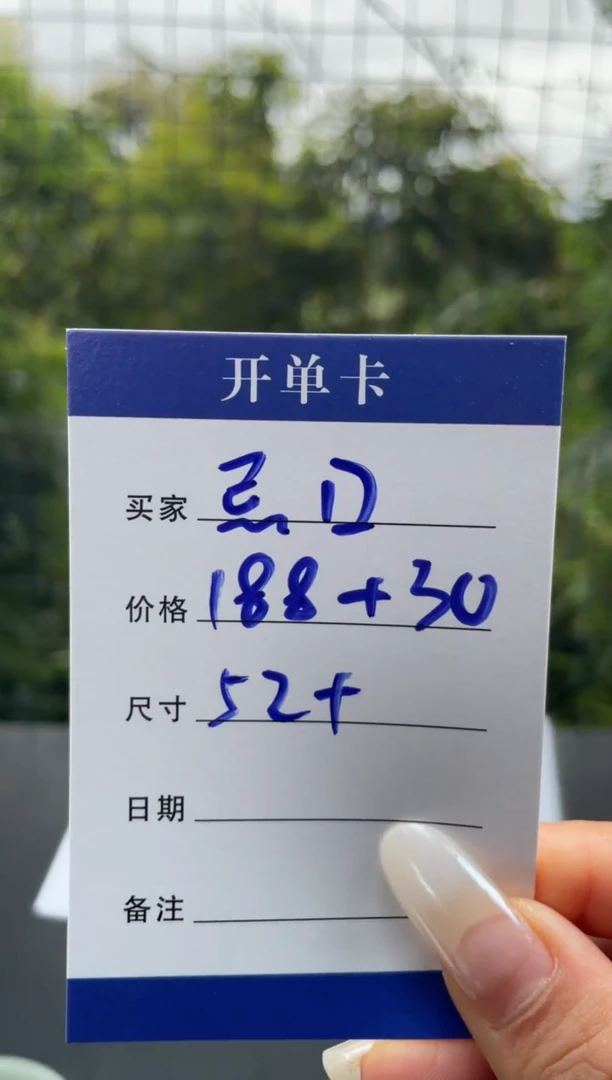 开单卡
买家 忌口
价格 188+30
尺寸 52+
日期
备注